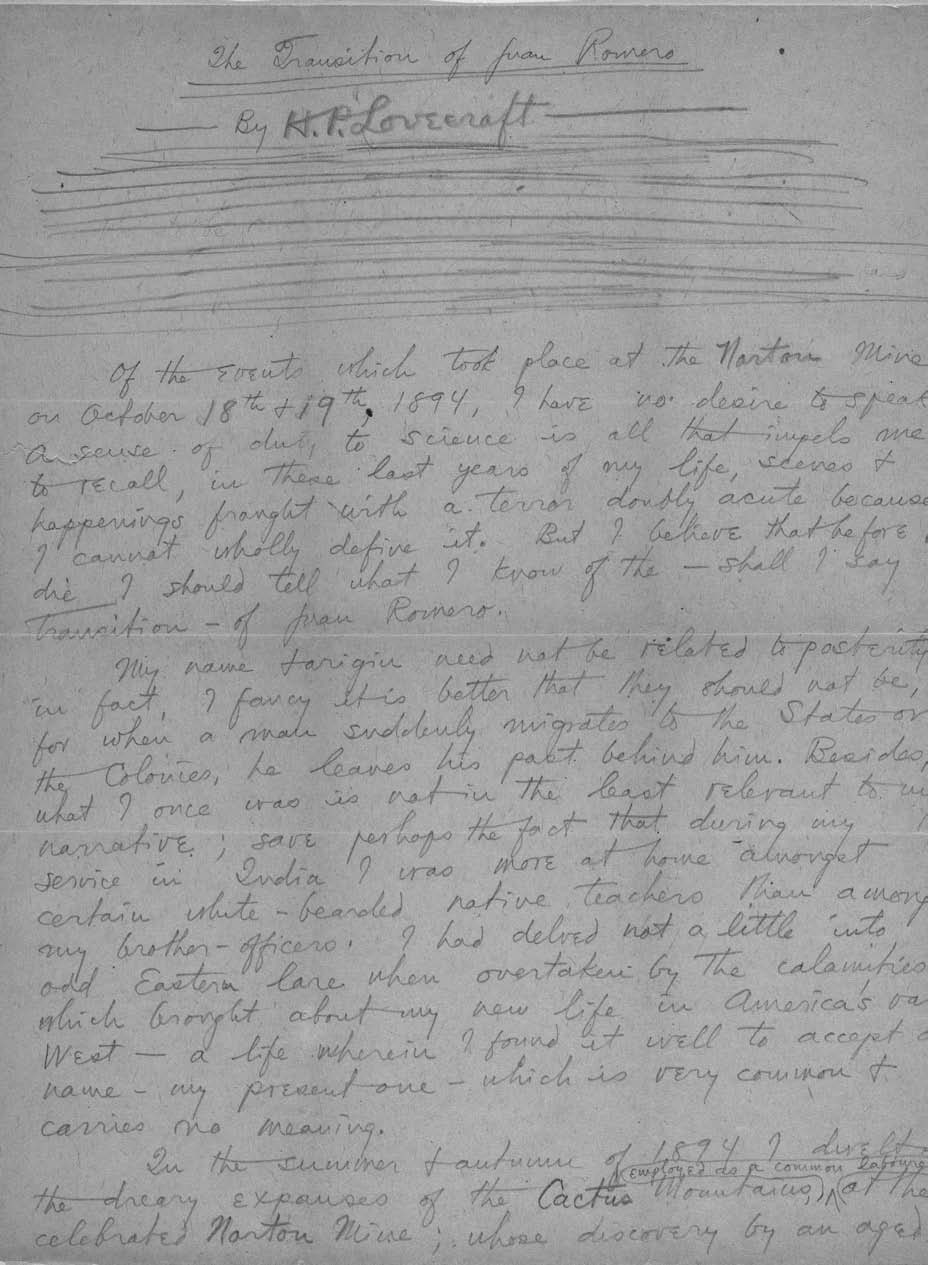 The Transition of Juan Romero
By H.P. Lovecraft
Of the events which took place at the Norton Mine
on October 18th & 19th, 1894, I have no desire to speak
A sense of duty to science is all that impels me
to recall, in these last years of my life, scenes &
happenings fraught with a terror doubly acute because
I cannot wholly define it. But I believe that before
die I should tell what I know of the — shall I say
Transition - of Juan Romero.
My name & origin need not be related to posterity
in fact, I fancy it is better that they should not be,
for when a man suddenly migrates to the States or
the Colonies, he leaves his past behind him. Besides,
what I once was is not in the least relevant to my
narrative; save perhaps the fact that during my
service in India I was more at home amongst
certain white-bearded native teachers than among
my brother-officers. I had delved not a little into
odd Eastern lore when overtaken by the calamities
which brought about my new life in America's va
West — a life wherein I found it well to accept a
name - my present one - which is very common &
carries no meaning.
In the summer & autumn of 1894 I dwelt
employed as a common laboure
the dreary expanses of the Cactus Mountains, at the
celebrated Norton Mine; whose discovery by an aged